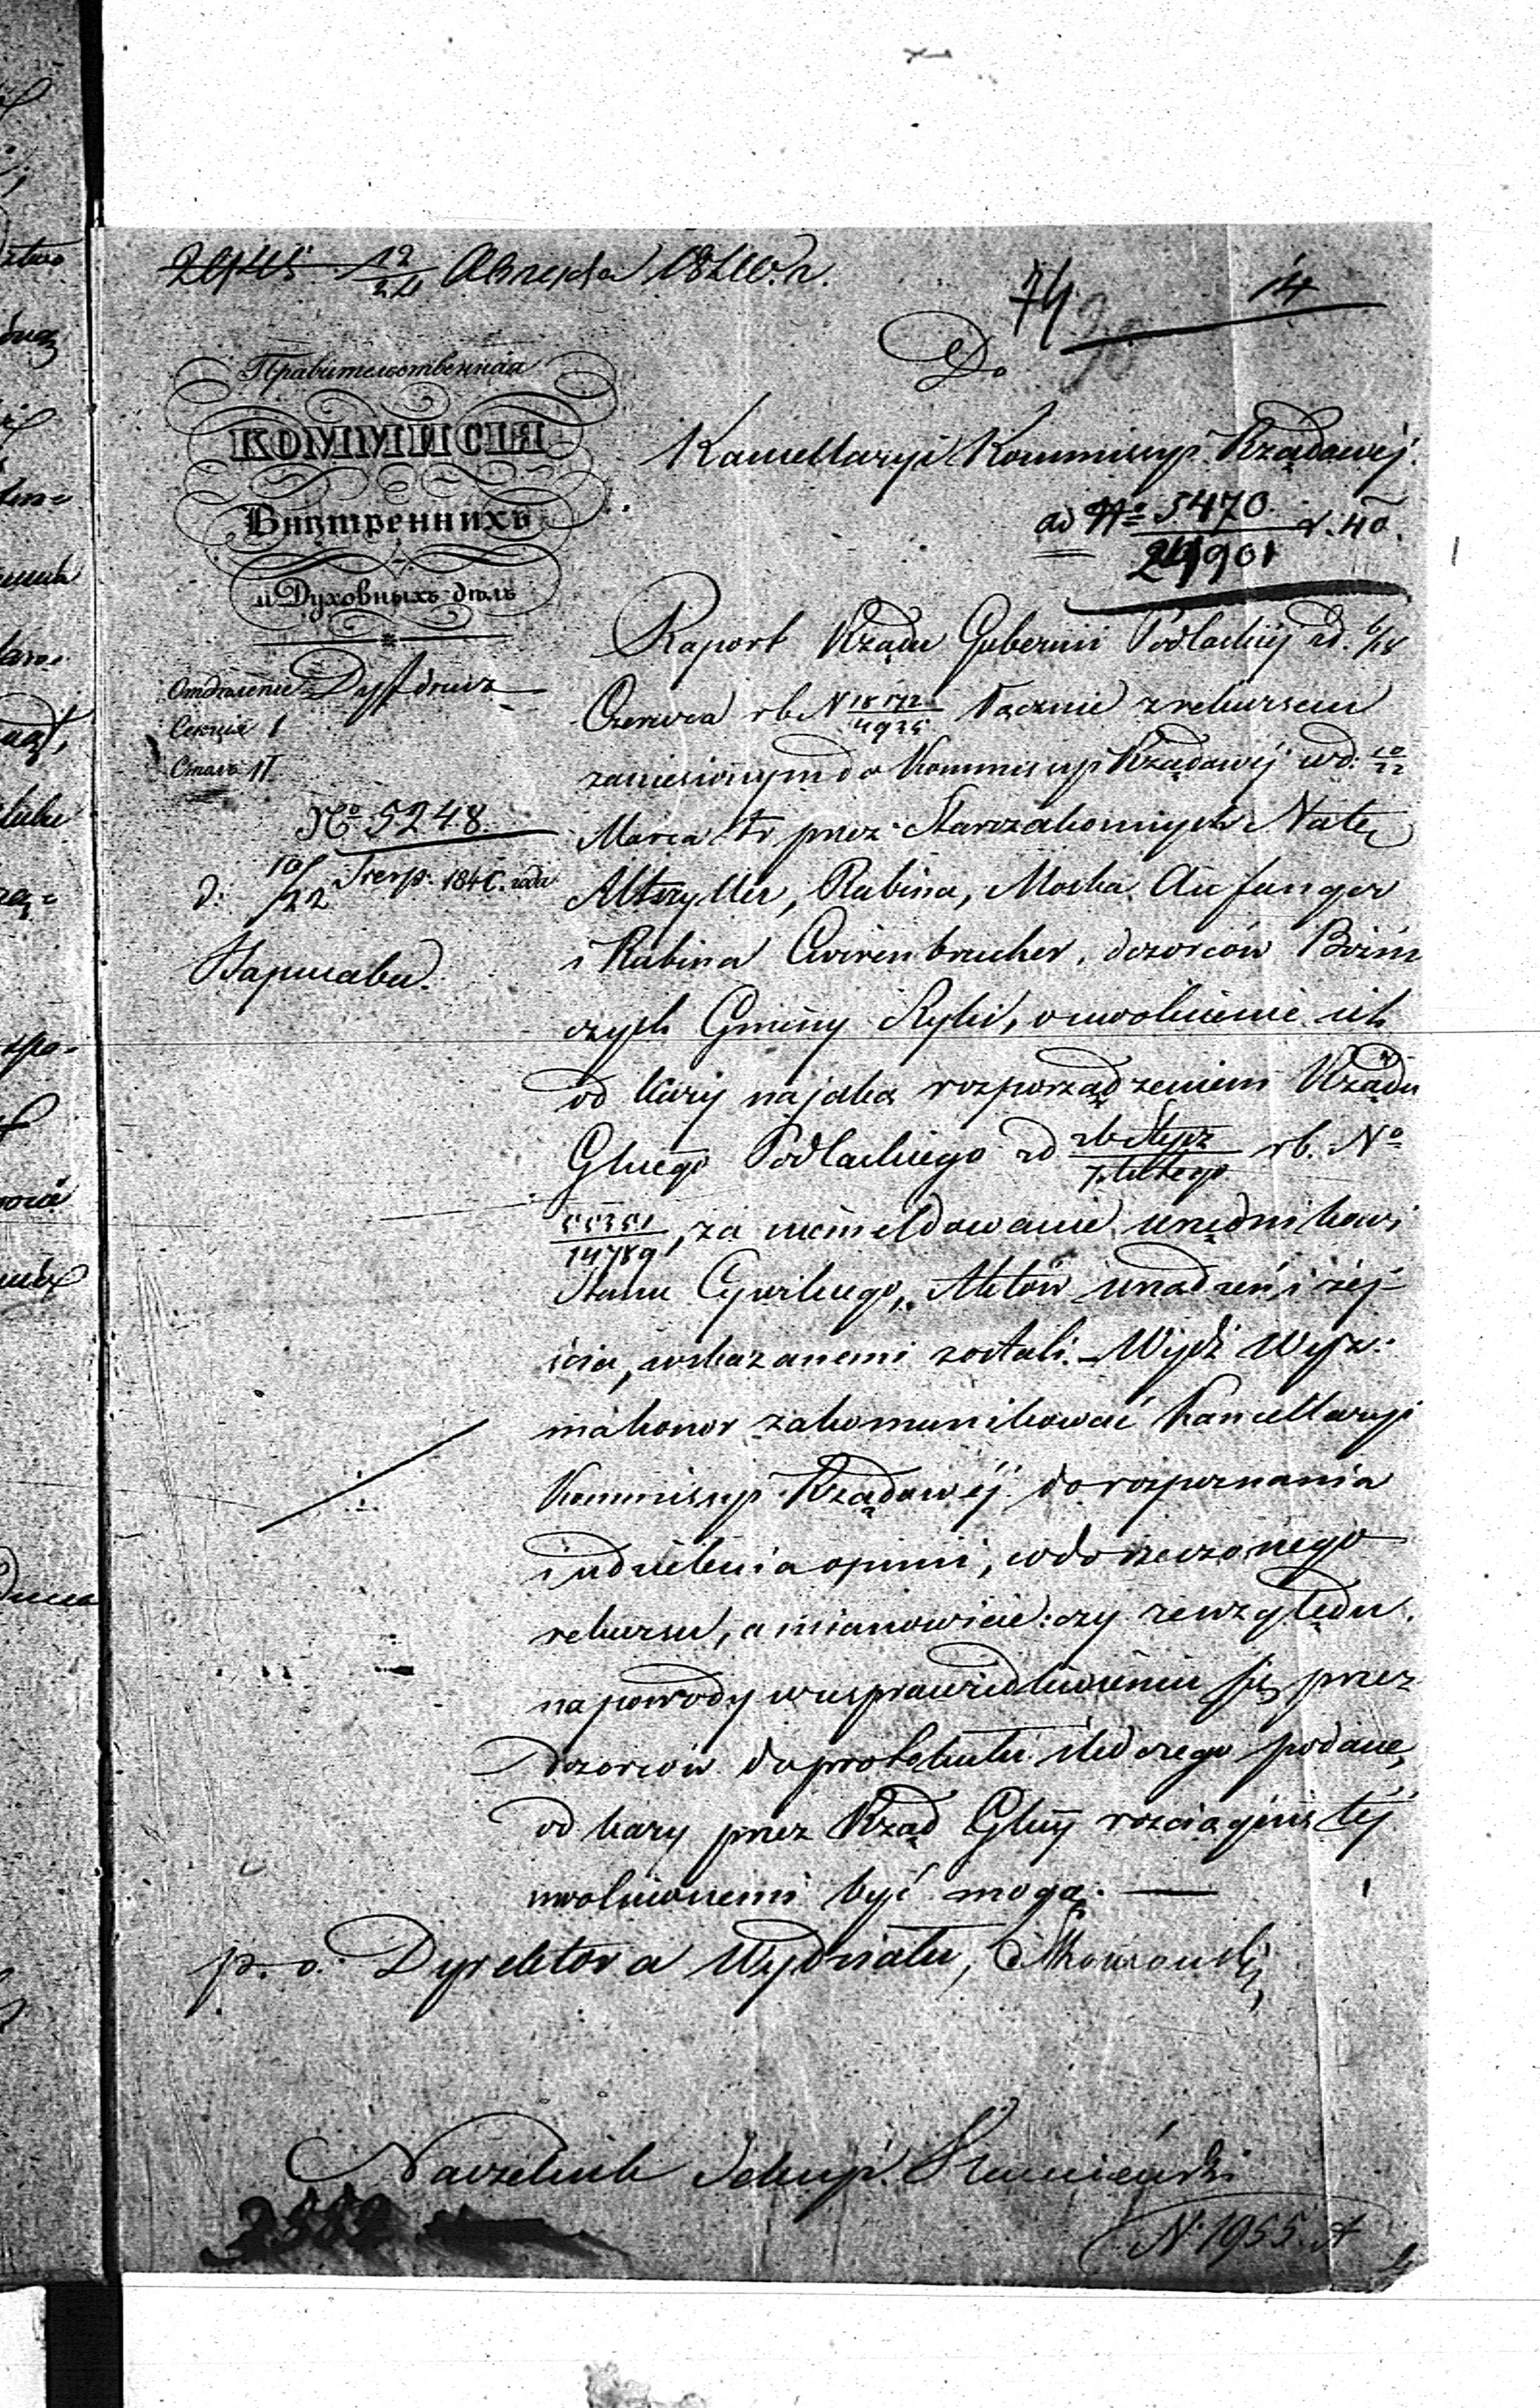 12/24 Августа 1840. г.
74
14
Правительственная
КОММИСІЯ
Внутреннихъ
и Духовныхъ дѣлъ
Отдѣленіе
Секція I
Столъ II
№ 5248.
д. 10/22 Sierp. 1840. года
Варшава.
Do
Kancellaryi Kommissyi Rządowéj.
ad № 5470/24901 r. 40.
Raport Rządu Gubernii Podlaskiéj zd. 6/18
Czerwca rb. N 18172/4935 łącznie z rekursem
zaniesionym do Kommissyi Rządowéj w d: 10/22
Marca tr przez Starozakonnych Natę
Altszyller, Rabina, Moska Aufanger
i Rubina Cwirenbrucher, dozorców Bóżni
czych Gminy Ryki, o uwolnienie ich
od kary na jaką rozporządzeniem Rządu
Glnego Podlaskiego zd 26 Stycz/7 Lutego rb. No
55351/14789, za niemeldowanie urzędnikowi
Stanu Cywilnego, Aktów urodzeń i zéj-
ścia, wskazanemi zostali. – Wydź Wyzn:
ma honor zakomunikować Kancellaryi
Kommissyi Rządowéj do rozpoznania
i udzielenia opinii, co do rzeczonego
rekursu, a mianowicie: czy ze względu
na powody w usprawiedliwieniu się przez
Dozorców do protokułu śledczego podane,
od kary przez Rząd Glny rozciągniętéj
uwolnionemi być mogą. —
p. o. Dyrektora Wydziału,
Naczelnik Sekcyi.
N. 1955. A